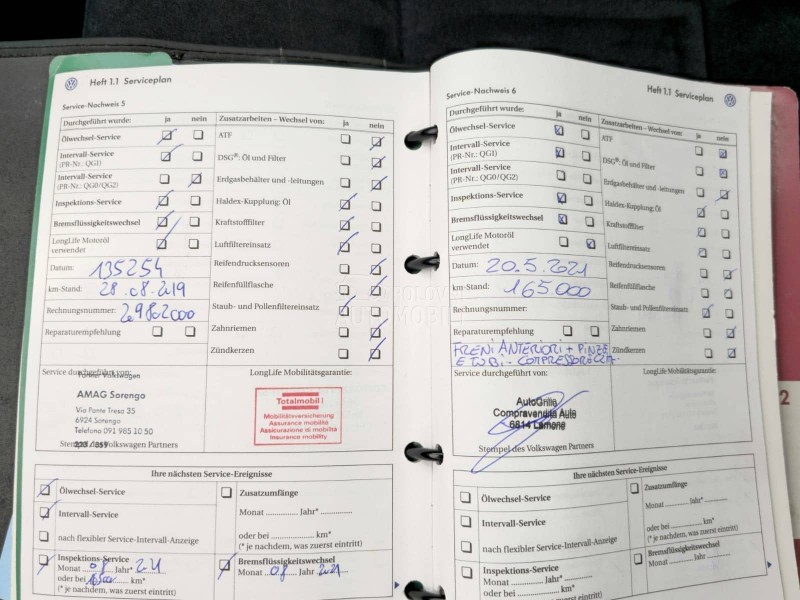 Heft 1.1 Serviceplan
Service-Nachweis 5
Durchgeführt wurde: ja nein
Ölwechsel-Service
Intervall-Service
(PR-Nr.: QG1)
Intervall-Service
(PR-Nr.: QG0/QG2)
Inspektions-Service
Bremsflüssigkeitswechsel
LongLife Motoröl
verwendet
Datum: 135254
km-Stand: 28.08.2019
Rechnungsnummer: 29862000
Reparaturempfehlung
Zusatzarbeiten - Wechsel von: ja nein
ATF
DSG®: Öl und Filter
Erdgasbehälter und -leitungen
Haldex-Kupplung: Öl
Kraftstofffilter
Luftfiltereinsatz
Reifendrucksensoren
Reifenfüllflasche
Staub- und Pollenfiltereinsatz
Zahnriemen
Zündkerzen
Service durchgeführt von:
Partner Volkswagen
AMAG Sorengo
Via Ponte Tresa 35
6924 Sorengo
Telefono 091 985 10 50
Stempel des Volkswagen Partners
LongLife Mobilitätsgarantie:
Totalmobil!
Mobilitätsversicherung
Assurance mobilité
Assicurazione di mobilità
Insurance mobility
Ihre nächsten Service-Ereignisse
Ölwechsel-Service
Intervall-Service
nach flexibler Service-Intervall-Anzeige
Inspektions-Service
Monat 08 Jahr* 21
oder bei km*
(* je nachdem, was zuerst eintritt)
Zusatzumfänge
Monat Jahr*
oder bei km*
(* je nachdem, was zuerst eintritt)
Bremsflüssigkeitswechsel
Monat 08 Jahr 2021
Heft 1.1 Serviceplan
Service-Nachweis 6
Durchgeführt wurde: ja nein
Ölwechsel-Service
Intervall-Service
(PR-Nr.: QG1)
Intervall-Service
(PR-Nr.: QG0/QG2)
Inspektions-Service
Bremsflüssigkeitswechsel
LongLife Motoröl
verwendet
Datum: 20.5.2021
km-Stand: 165.000
Rechnungsnummer:
Reparaturempfehlung
FRENI ANTERIORI + PINZE
E TUBI - COMPRESSORE
Zusatzarbeiten - Wechsel von: ja nein
ATF
DSG®: Öl und Filter
Erdgasbehälter und -leitungen
Haldex-Kupplung: Öl
Kraftstofffilter
Luftfiltereinsatz
Reifendrucksensoren
Reifenfüllflasche
Staub- und Pollenfiltereinsatz
Zahnriemen
Zündkerzen
Service durchgeführt von:
AutoGrilla
Compravendita Auto
6814 Lamone
Stempel des Volkswagen Partners
LongLife Mobilitätsgarantie:
Ihre nächsten Service-Ereignisse
Ölwechsel-Service
Intervall-Service
nach flexibler Service-Intervall-Anzeige
Inspektions-Service
Monat Jahr*
oder bei km*
Zusatzumfänge
Monat Jahr*
oder bei km*
(* je nachdem, was zuerst eintritt)
Bremsflüssigkeitswechsel
Monat Jahr
2